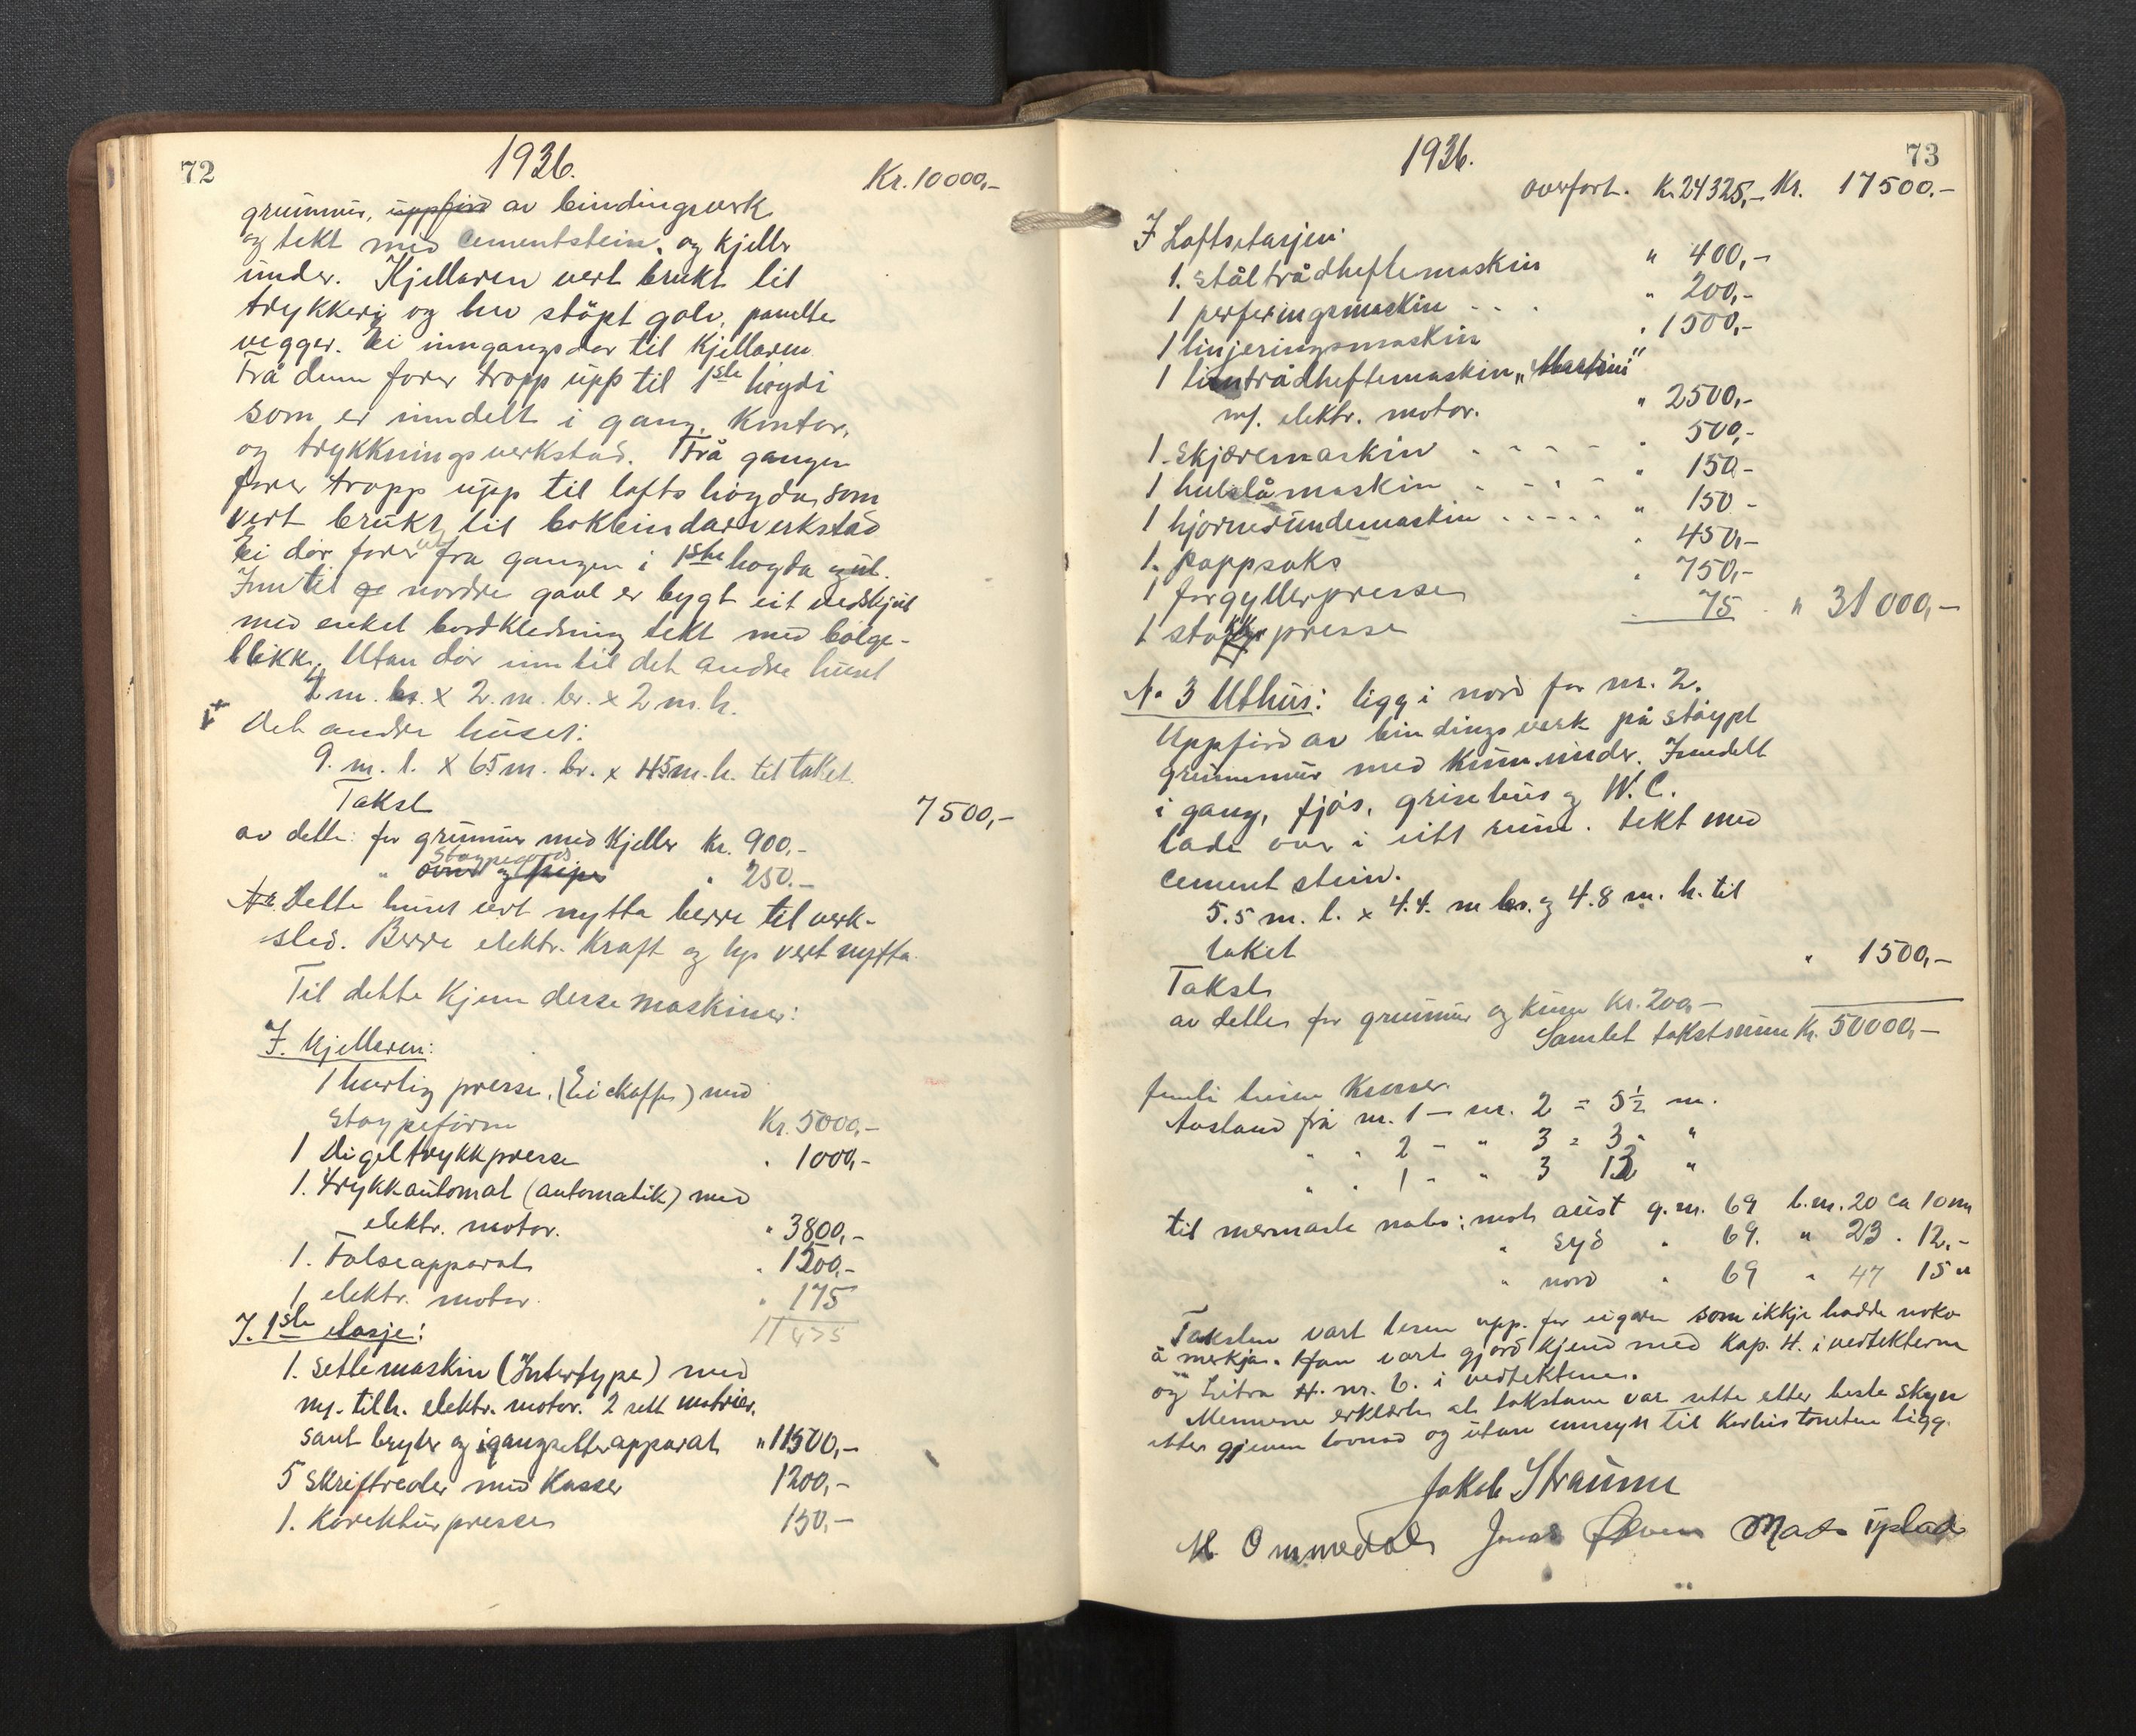 72
1936.
Kr. 10000,-
grunnmur, uppförd av bindingsverk
og tekt med cementstein, og kjeller
under. Kjellaren vert brukt til
trykkeri og hev stöpt golv, panelte
vegger. Ei inngangsdør til Kjellaren.
Frå denn fører tropp upp til 1ste høgdi
som er inndelt i gang, Kontor,
og trykkningsverkstad. Frå gangen
fører tropp upp til lofts høgda, som
vert brukt til bokbindarverkstad
Ei dør fører ut fra gangen i 1ste høgda ut.
Inntil nordre gavl er bygt eit vedskjul
med enkel bordkledning tekt med bølge-
blikk. Utan dør inn til det andre huset
2 m. br. x 2 m. h.
Det andre huset:
9. m. l. x 65 m. br. x 45 m. h. til taket.
Takst 7500,-
av dette: for grunnmur med Kjeller Kr. 900,-
" ovner og pipe " 250.-
Dette huset vert nytta berre til verk-
sted. Berre elektr. Kraft og lys vert nytta.
Til dette kjem desse maskiner:
I. Kjellaren:
1 hurtig presse, (Eickoffs) med
støypeform Kr. 5000,-
1 Digeltrykkpresse " 1000,-
1. trykkautomat (automatik) med
elektr. motor. " 3800,-
1. Falseapparat " 1500,-
1 elektr. motor. " 175
11475
I. 1ste etasje:
1. settemaskin (Intertype) med
m/ tilh. elektr. motor. 2 sett matriser,
samt bryter og igangsetterapparat " 11500,-
5 skriftreoler med Kasser 1200,-
1. Korekturpresse 150,-
73
1936.
overført. Kr. 24325,- Kr. 17500.-
I Loftsetasjen:
1. ståltrådheftemaskin " 400,-
1 perferingsmaskin " 200,-
1 linjeringsmaskin " 1500,-
1 trådheftemaskin "Martini"
m/. elektr. motor. " 2500,-
1. skjæremaskin " 500,-
1 hulslåmaskin " 150-
1 hjørnerundemaskin " 150-
1. pappsaks " 450,-
1 forgyllerpresse " 750,-
1 stokkpresse 75 " 31000,-
No 3 Uthus: ligg i nord for nr. 2.
Uppförd av bindingsverk på støypt
grunnmur med Kum under. Inndelt
i gang, fjøs, grisehus og W.C.
lade over i eitt rum. tekt med
cement stein.
5.5 m. l. x 4.4. m br. og 4.8 m. h. til
taket
Takst " 1500,-
av dette for grunnmur og kum Kr. 200,-
Samlet takstsum Kr. 50000,-
Avstand frå nr. 1 - nr. 2 = 5 1/2 m.
" " 2 - " 3 = 3 "
" " 1 - " 3 12 "
til nærmaste nabo: mot aust g.nr. 69 b.nr. 20 ca 10 m
" syd " 69. " 23 . 12.-
" nord " 69 " 47 15 "
Taksten vart lesen upp for eigaren som ikkje hadde noko
å merkja. Han vart gjord kjend med Kap. 4. i vedtektene
og Litra H. nr. 6. i vedtektene.
Mennene erklærte at takstane var sette etter beste skyn
etter gjeven lovnad og utan umsyn til Karhustomten ligg.
Jakob Straume
M. Ommedal Jonas Øven Mads Ystad